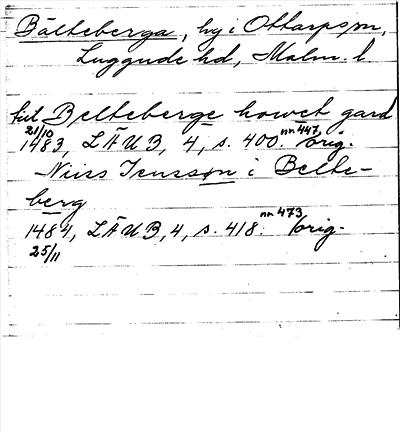 Bälteberga, by i Ottarps sn,
Luggude hd, Malm. l
til Belteberge howet gard
21/10 nr 447,
1483, LÄUB, 4, s. 400. orig.
Niiss Jensson i Belte-
berg
nr 473,
1484, LÄUB, 4, s. 418. orig.
25/11